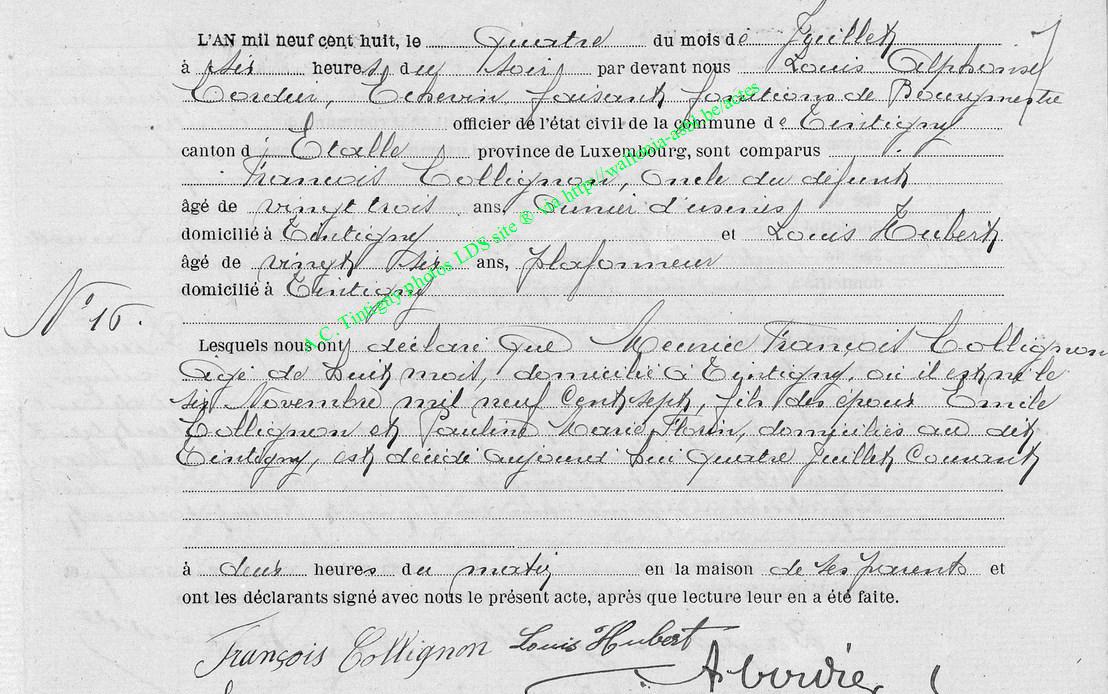 L'AN mil neuf cent huit, le Quatre du mois de Juillet
à six heures du soir par devant nous Louis Alphonse
Cordier, Echevin faisant fonctions de Bourgmestre
officier de l'état civil de la commune de Tintigny
canton d'Etalle province de Luxembourg, sont comparus
François Collignon, Oncle du défunt
âgé de vingt trois ans, ouvrier d'usines
domicilié à Tintigny et Louis Hubert
âgé de vingt six ans, plafonneur
domicilié à Tintigny
N° 16.
Lesquels nous ont déclaré que Meurice François Collignon
âgé de huit mois, domicilié à Tintigny, où il est né le
six Novembre mil neuf Cent sept, fils des époux Emile
Collignon et Pauline Marie Florin, domiciliés au dit
Tintigny, est décédé aujourd'hui quatre Juillet Courant
à deux heures du matin en la maison de ses parents et
ont les déclarants signé avec nous le présent acte, après que lecture leur en a été faite.
François Collignon Louis Hubert
A. Cordier
A.C. Tintigny photos LDS site ® via http://wallonia-asbl.be/actes